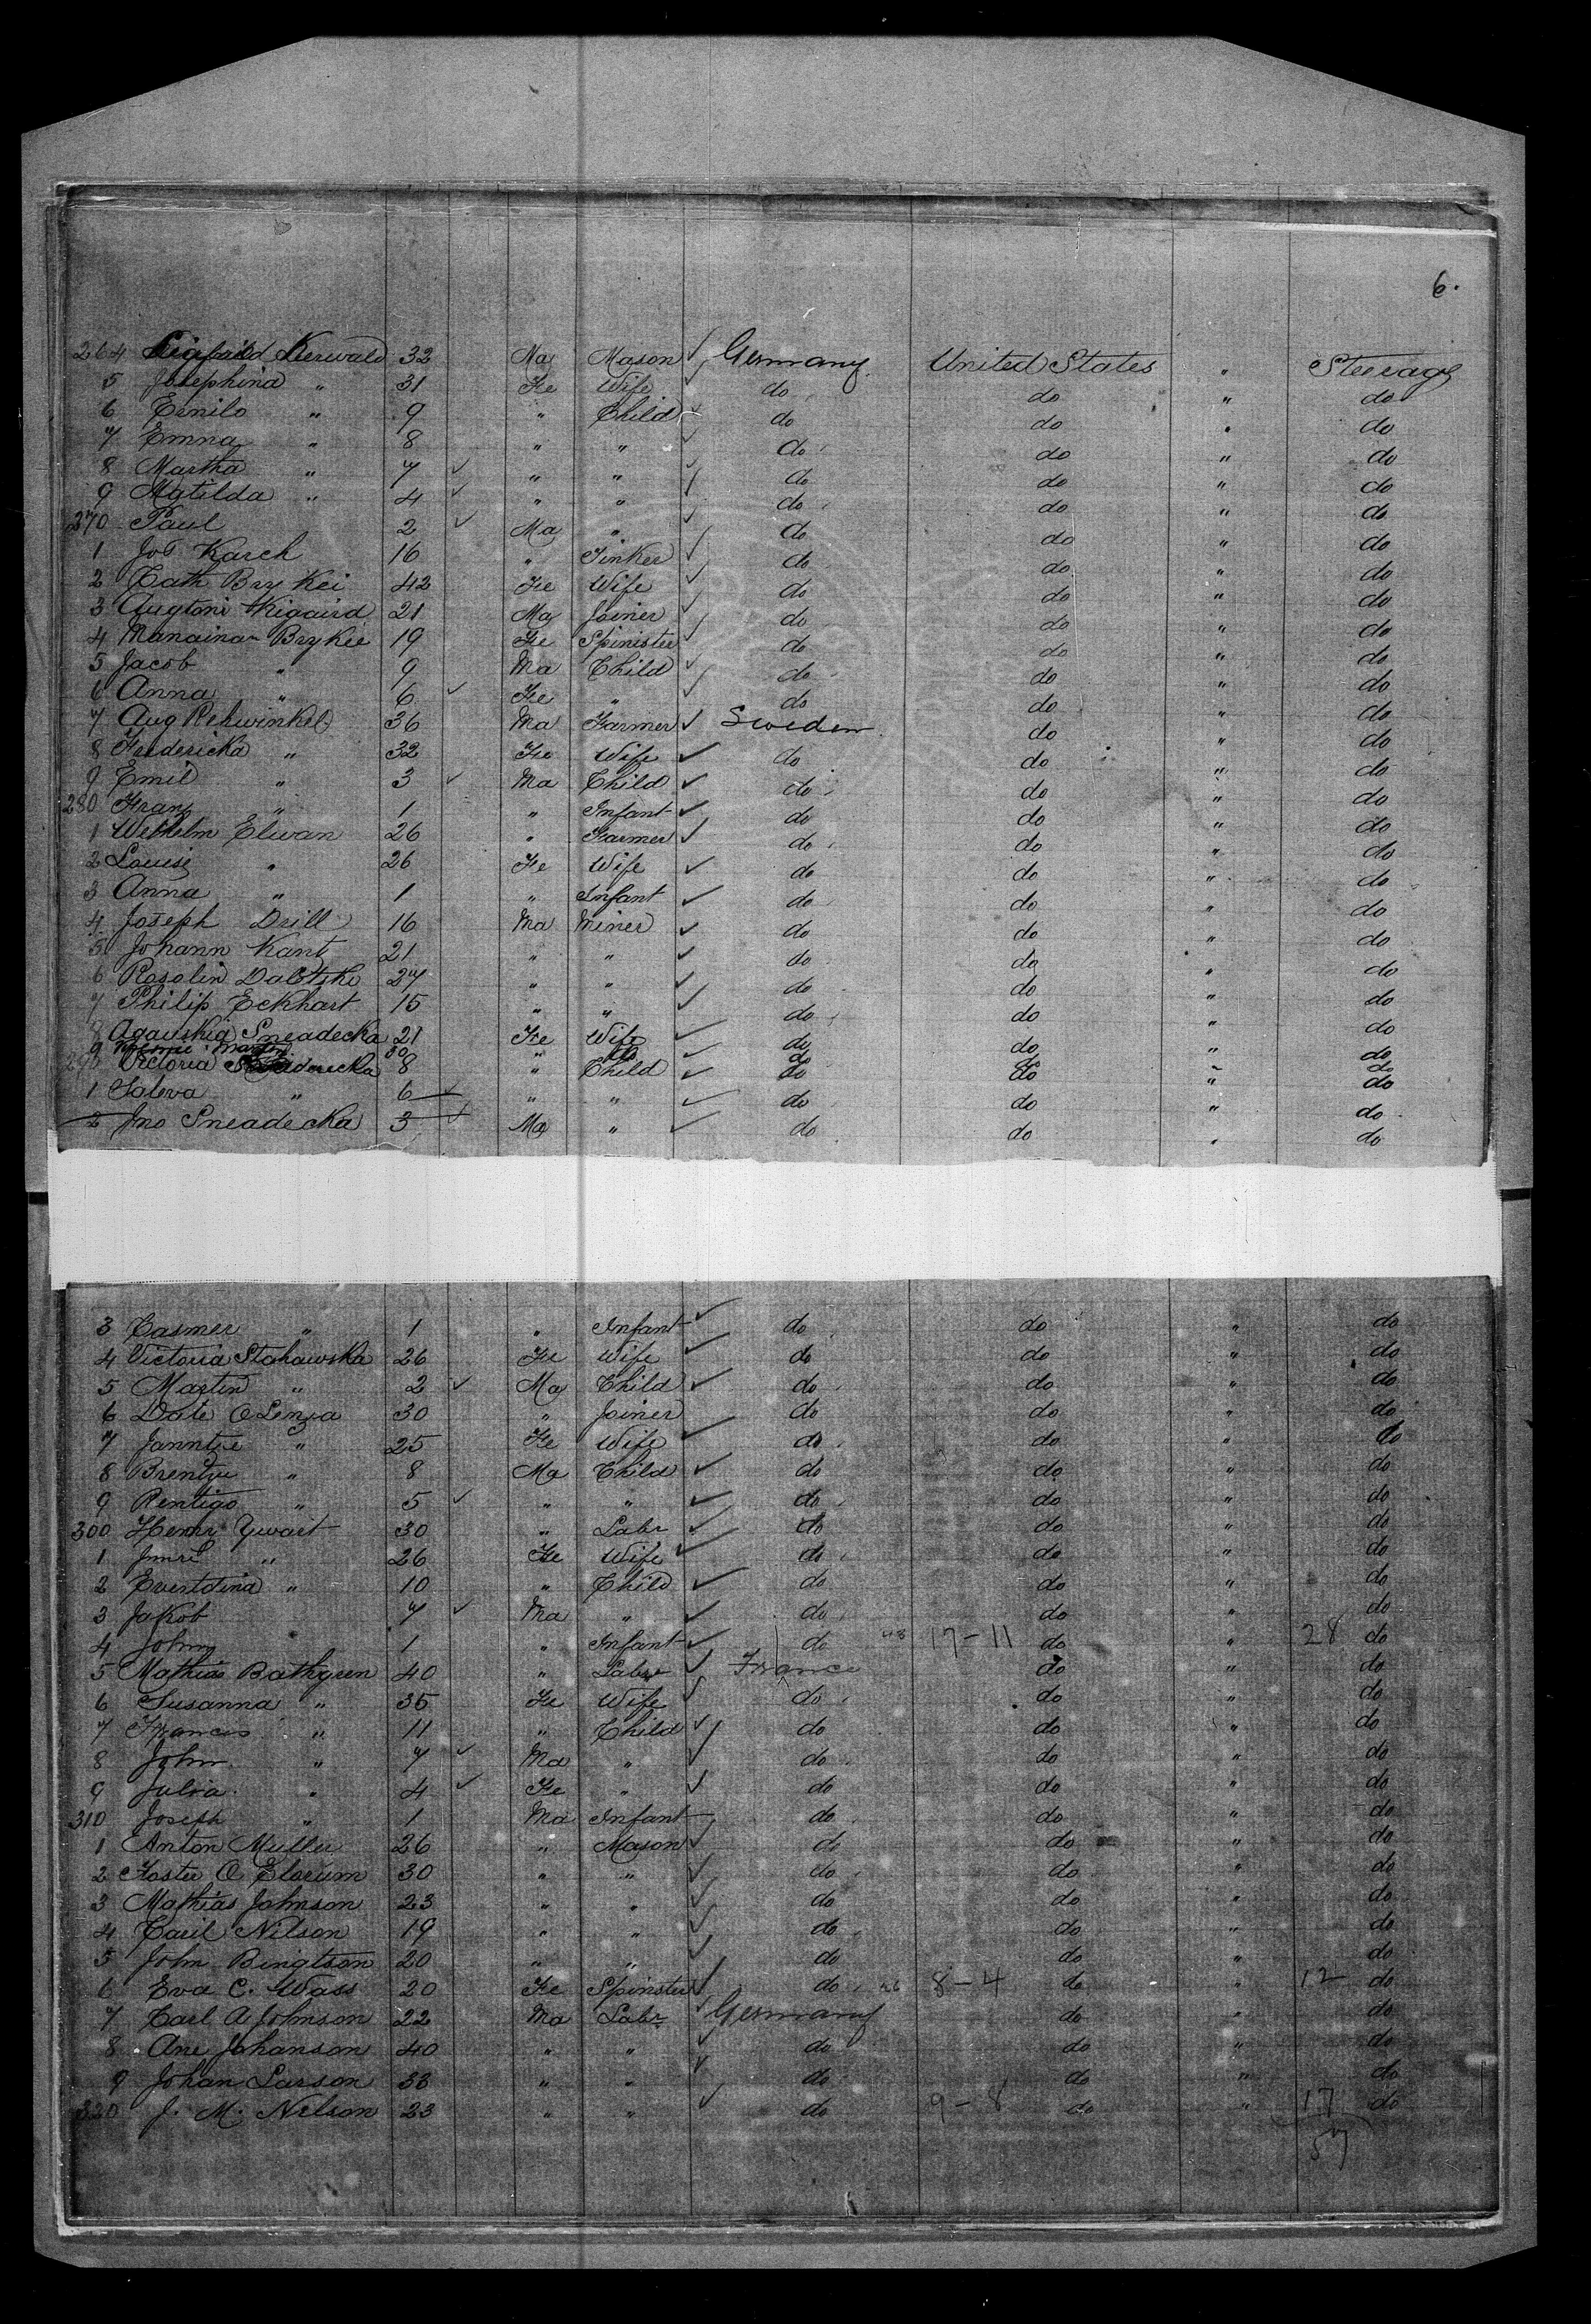 6.
264 Kerwald 32 Ma Mason ✓ Germany United States " Steerage
5 Josephina " 31 Fe Wife ✓ do do " do
6 Ernilo " 9 " Child ✓ do do " do
7 Emna " 8 " " ✓ do do " do
8 Martha " 7 ✓ " " ✓ do do " do
9 Matilda " 4 ✓ " " ✓ do do " do
270 Paul 2 ✓ Ma " ✓ do do " do
1 Jos Karch 16 " Tinker ✓ do do " do
2 Cath Bry Kei 42 Fe Wife ✓ do do " do
3 21 Ma Joiner ✓ do do " do
4 Brykee 19 Fe Spinister ✓ do do " do
5 Jacob " 9 Ma Child ✓ do do " do
6 Anna " 6 ✓ Fe " ✓ do do " do
7 Aug Rehwinkel 36 Ma Farmer ✓ Sweden do " do
8 Fredericka " 32 Fe Wife ✓ do do " do
9 Emil " 3 ✓ Ma Child ✓ do do " do
280 Franz " 1 " Infant ✓ do do " do
1 Welhelm Elwan 26 " Farmer ✓ do do " do
2 Louise " 26 Fe Wife ✓ do do " do
3 Anna " 1 " Infant ✓ do do " do
4 Joseph Drill 16 Ma Miner ✓ do do " do
5 Johann Kant 21 " " ✓ do do " do
6 Rosolin 27 " " ✓ do do " do
7 Philip Eckhart 15 " " ✓ do do " do
8 Sneadecka 21 Fe Wife ✓ do do " do
9 Martin 30 " do ✓ do do " do
290 Victoria 8 " Child ✓ do do " do
1 Saleva " 6 ✓ " " ✓ do do " do
2 Jno Sneadecka 3 ✓ Ma " ✓ do do " do
3 Casmer " 1 " Infant ✓ do do " do
4 Victoria Stahawska 26 Fe Wife ✓ do do " do
5 Martin " 2 ✓ Ma Child ✓ do do " do
6 Date OLenza 30 " Joiner do do " do
7 Janntze " 25 Fe Wife ✓ do do " do
8 Brentze " 8 Ma Child ✓ do do " do
9 Rentigo " 5 ✓ " " ✓ do do " do
300 Henry Zwart 30 " Labr ✓ do do " do
1 " 26 Fe Wife ✓ do do " do
2 Evertdina " 10 " Child ✓ do do " do
3 Jakob 7 ✓ Ma " ✓ do do " do
4 Johny 1 " Infant ✓ do 17-11 do " 28 do
5 Mathias Bathgren 40 " Labr ✓ France do " do
6 Susanna " 35 Fe Wife ✓ do do " do
7 Francis " 11 " Child ✓ do do " do
8 John " 7 ✓ Ma " ✓ do do " do
9 Julia " 4 ✓ Fe " ✓ do do " do
310 Joseph " 1 Ma Infant do do " do
1 Anton Muller 26 " Mason ✓ do do " do
2 Foster O Elorum 30 " " ✓ do do " do
3 Mathias Johnson 23 " " ✓ do do " do
4 Caril Nilson 19 " " ✓ do do " do
5 John Bingtson 20 " " ✓ do do " do
6 Eva C. Wass 20 Fe Spinster ✓ do 26 8-4 do " 12 do
7 Carl A Johnson 22 Ma Labr ✓ Germany do " do
8 Ane Johanson 40 " " ✓ do do " do
9 Johan Larson 33 " " ✓ do do " do
320 J. M. Nelson 23 " " ✓ do 9-8 do " 17 do
57